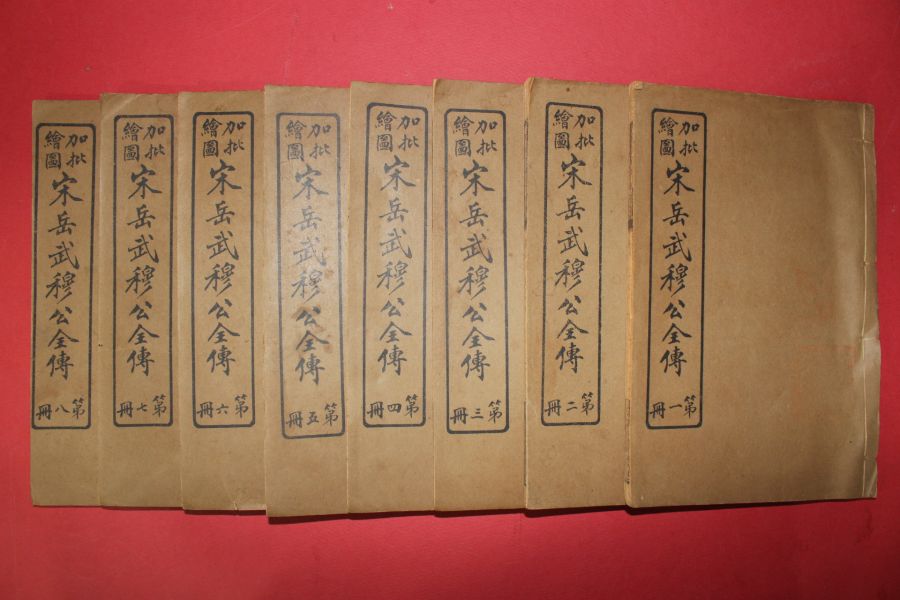 加批繪圖
宋岳武穆公全傳
第一冊
加批繪圖
宋岳武穆公全傳
第二冊
加批繪圖
宋岳武穆公全傳
第三冊
加批繪圖
宋岳武穆公全傳
第四冊
加批繪圖
宋岳武穆公全傳
第五冊
加批繪圖
宋岳武穆公全傳
第六冊
加批繪圖
宋岳武穆公全傳
第七冊
加批繪圖
宋岳武穆公全傳
第八冊